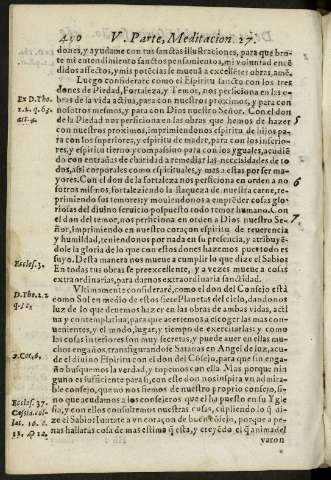 450 V. Parte, Meditacion. 27.
dones, y ayudame con tus sanctas illustraciones, para que bro-
te mi entendimiento sanctos pensamientos, mi voluntad encē
didos affectos, y mis potēcias se mueuā a excellētes obras, amē.
Luego considerarè como el Espiritu sancto con los tres
dones de Piedad, Fortaleza, y Temor, nos perficiona en las o-
Ex D. Tho.
bras de la vida actiua, para con nuestros proximos, y para con
2.2. q. 63.
nosotros mesmos, y para con Dios nuestro Señor. Con el don
art. 4.
de la Piedad nos perficiona en las obras que hemos de hazer 5
con nuestros proximos, imprimiendonos espiritu de hijos pa-
ra con los superiores, y espiritu de madre, para con los inferio-
res, y espiritu tierno y compassiuo para con los yguales, acudiē
do con entrañas de charidad a remediar las necessidades de to-
dos, assi corporales como espirituales, y mas a ellas por ser ma-
yores. Con el don de la fortaleza nos perficiona en orden a no 6
sotros mismos, fortaleziendo la flaqueza de nuestra carne, re-
primiendo sus temores: y mouiendonos a emprēder cosas glo-
riosas del diuino seruicio pospuesto todo temor humano. Con
el don del temor, nos perficiona en orden a Dios nuestro Se- 7
ñor, imprimiendo en nuestro coraçon espiritu de reuerencia
y humildad, teniendonos por nada en su presencia, y atribuyē-
dole la gloria de lo que con estos dones hazemos pues todo es
suyo. Desta manera nos mueue a cumplir lo que dize el Sabio
Eccles. 3.
En todas tus obras se preexcellente, y a vezes mueue a cosas
extraordinarias, para darnos extraordinaria sanctidad.
Vltimamente considerarè, como el don del Consejo está
D. Tho. 2.2
como Sol en medio de estos siete Planetas del cielo, dandonos
q. 52.
luz de lo que deuemos hazer en las obras de ambas vidas, acti
ua y contemplatiua, para que acertemos a escoger las mas con-
uenientes, y el modo, lugar, y tiempo de exercitarlas: y como
las cosas interiores son muy secretas, y puede auer en ellas mu-
chos engaños, transfigurandose Satanas en Angel de luz, acu-
2. Cor. 6.
de el diuino Espiritu con el don del Cōsejo, para que sin enga-
ño busquemos la verdad, y topemos con ella. Mas porque nin-
guno es suficiente para si, con este don nos inspira vn admira-
ble consejo, que no nos fiemos de nuestro proprio consejo, si-
Eccles. 37.
no que acudamos a los consejeros que el ha puesto en su Ygle
Cassia. col
sia, y con ellos consultemos nuestras cosas, cūpliendo lo q̄ di-
lat. 16. c.
ze el Sabio: Iuntate a vn coraçon de buen cōsejo, porque a pe-
11. & 12.
nas hallaràs cosa de mas estima q̄ esta, y creyēdo el q̄ anima del
varon